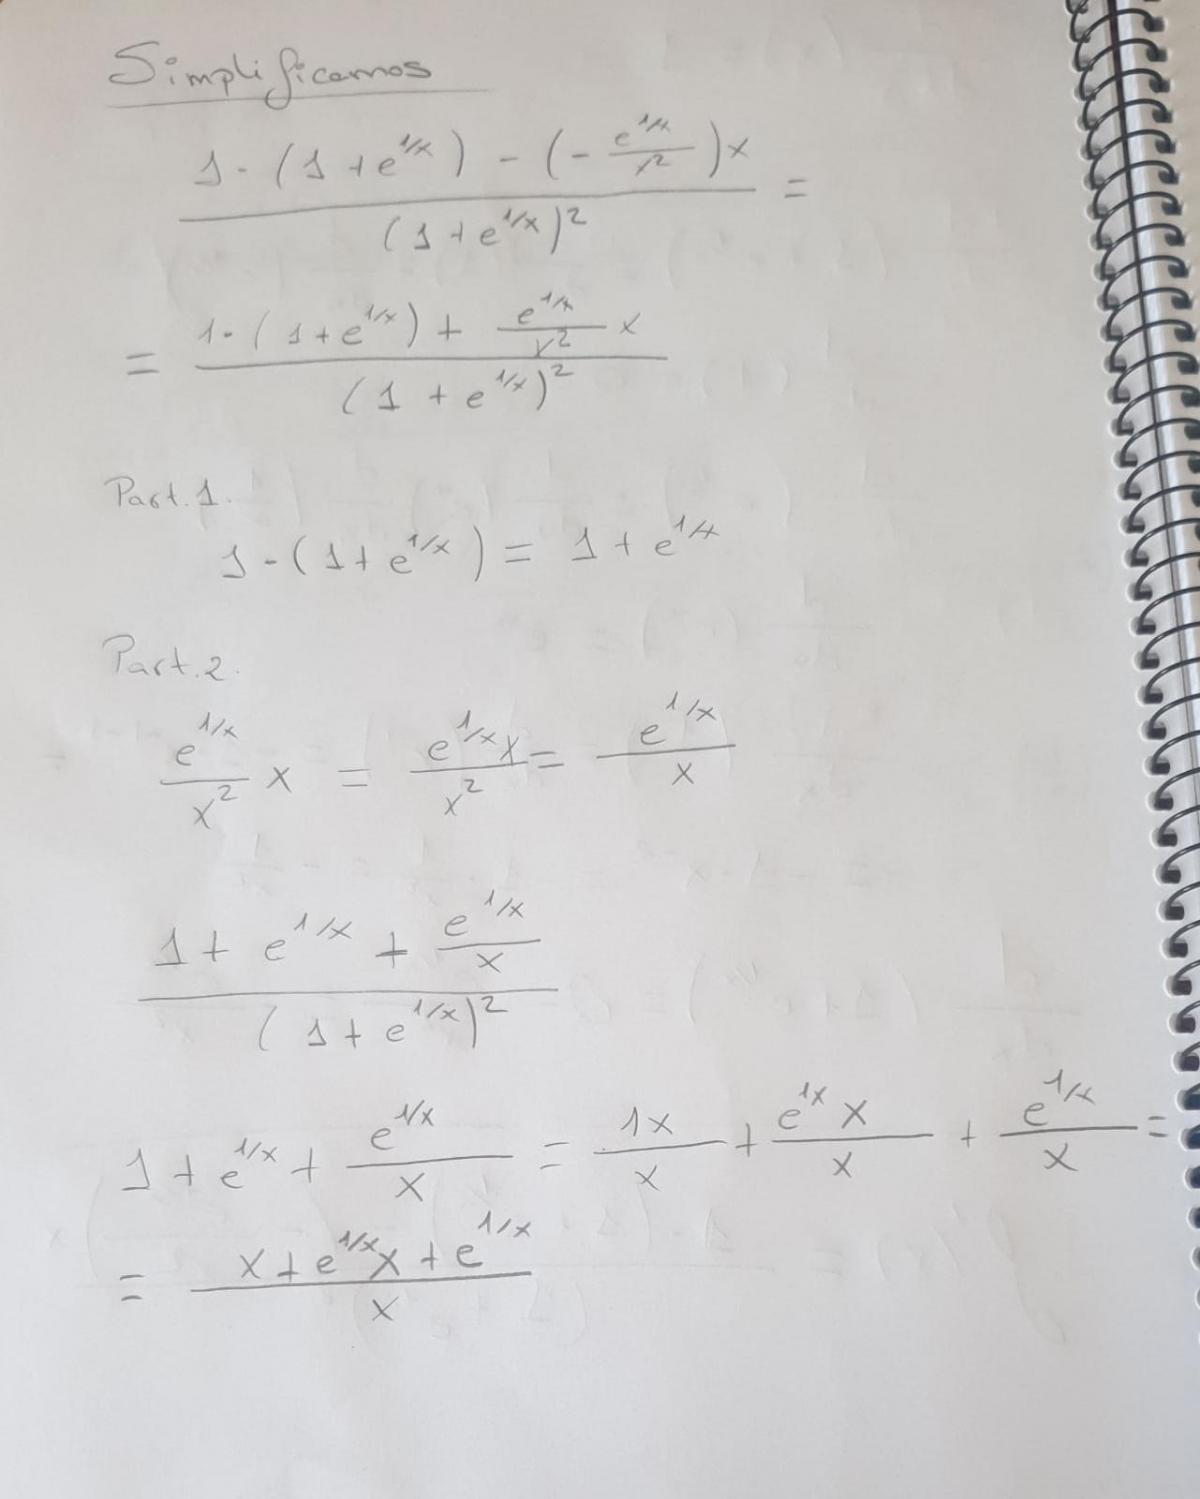 Simplificamos
1·(1+e^{1/x}) - (-\frac{e^{1/x}}{x^2})x
(1+e^{1/x})^2 =
= \frac{1·(1+e^{1/x}) + \frac{e^{1/x}}{x^2} x}{(1+e^{1/x})^2}
Part.1.
1·(1+e^{1/x}) = 1+e^{1/x}
Part.2.
\frac{e^{1/x}}{x^2} x = \frac{e^{1/x} x}{x^2} = \frac{e^{1/x}}{x}
\frac{1+e^{1/x}+\frac{e^{1/x}}{x}}{(1+e^{1/x})^2}
1+e^{1/x}+\frac{e^{1/x}}{x} = \frac{1x}{x} + \frac{e^{1x} x}{x} + \frac{e^{1/x}}{x} =
= \frac{x+e^{1/x}x+e^{1/x}}{x}